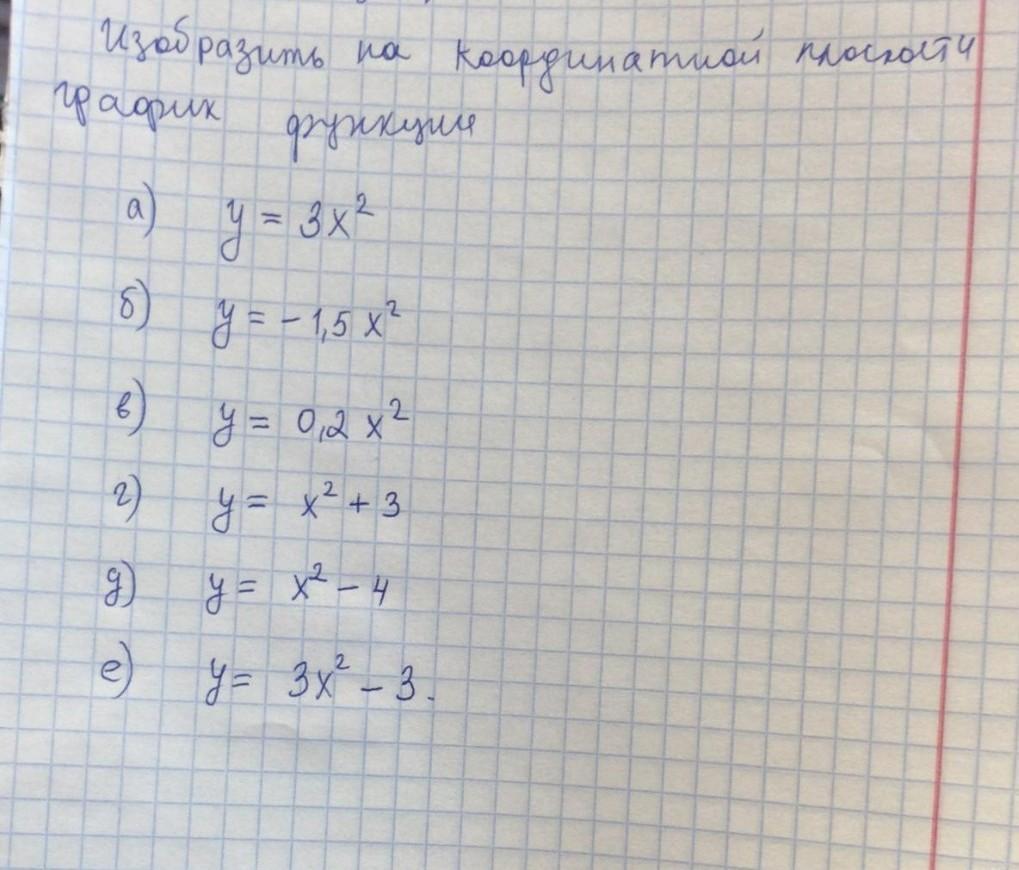 Изобразить на координатной плоскости
график функции
а) y = 3x²
б) y = -1,5 x²
в) y = 0,2 x²
г) y = x² + 3
д) y = x² - 4
е) y = 3x² - 3.